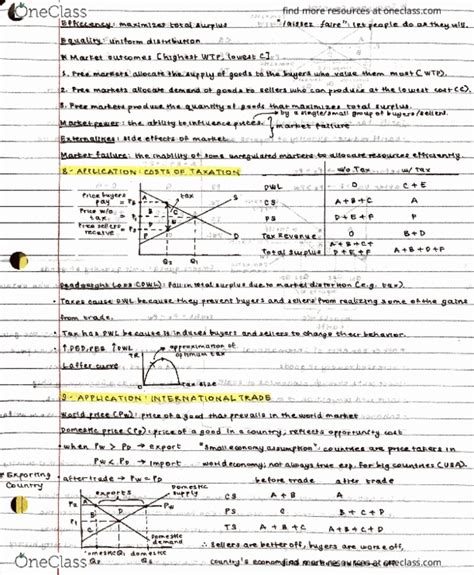 OneClass
find more resources at oneclass.com
Efficiency: maximizes total surplus
"laissez faire": let people do as they will.
Equality: uniform distribution
* Market outcomes [highest WTP, lowest C]
1. Free markets allocate the supply of goods to the buyers who value them most (WTP).
2. Free markets allocate demand of goods to sellers who can produce at the lowest cost (C).
3. Free markets produce the quantity of goods that maximizes total surplus.
by a single/small group of buyers/sellers.
Market power: the ability to influence prices.
market failure
Externalities: side effects of market
Market failure: the inability of some unregulated markets to allocate resources efficiently
8- APPLICATION: COSTS OF TAXATION
w/o Tax w/ Tax
DWL 0 C+E
Price buyers pay = PB
tax
S
CS A+B+C A
Price w/o tax = P1
PS D+E+F F
Price sellers receive = PS
Tax Revenue 0 B+D
A B C D E F
D
Total Surplus A+B+C+D+E+F A+B+D+F
Q2 Q1
Deadweight Loss (DWL): fall in total surplus due to market distortion (e.g. tax)
• Taxes cause DWL because they prevent buyers and sellers from realizing some of the gains
from trade.
• Tax has DWL because it induces buyers and sellers to change their behavior.
• ↑PED, PES ↑DWL
TR
approximation of optimum tax
Laffer curve
tax size
9- APPLICATION: INTERNATIONAL TRADE
World price (PW): price of a good that prevails in the world market
Domestic price (PD): price of a good in a country; reflects opportunity cost
• when PW > PD → export "Small economy assumption": countries are price takers in
PW < PD → import world economy; not always true esp. for big countries (USA).
* Exporting Country
• after trade → PW = PD
before trade after trade
exports
domestic supply
CS A+B A
P2
PW
PS C B+C+D
P1
A B D C
TS A+B+C A+B+C+D
domestic demand
∴ Sellers are better off, buyers are worse off,
domestic Q2 Q1
country's economic
OneClass
find more resources at oneclass.com